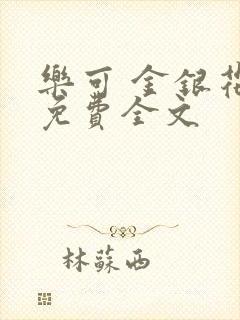 樂可 金銀花
免費全文
林蘇西